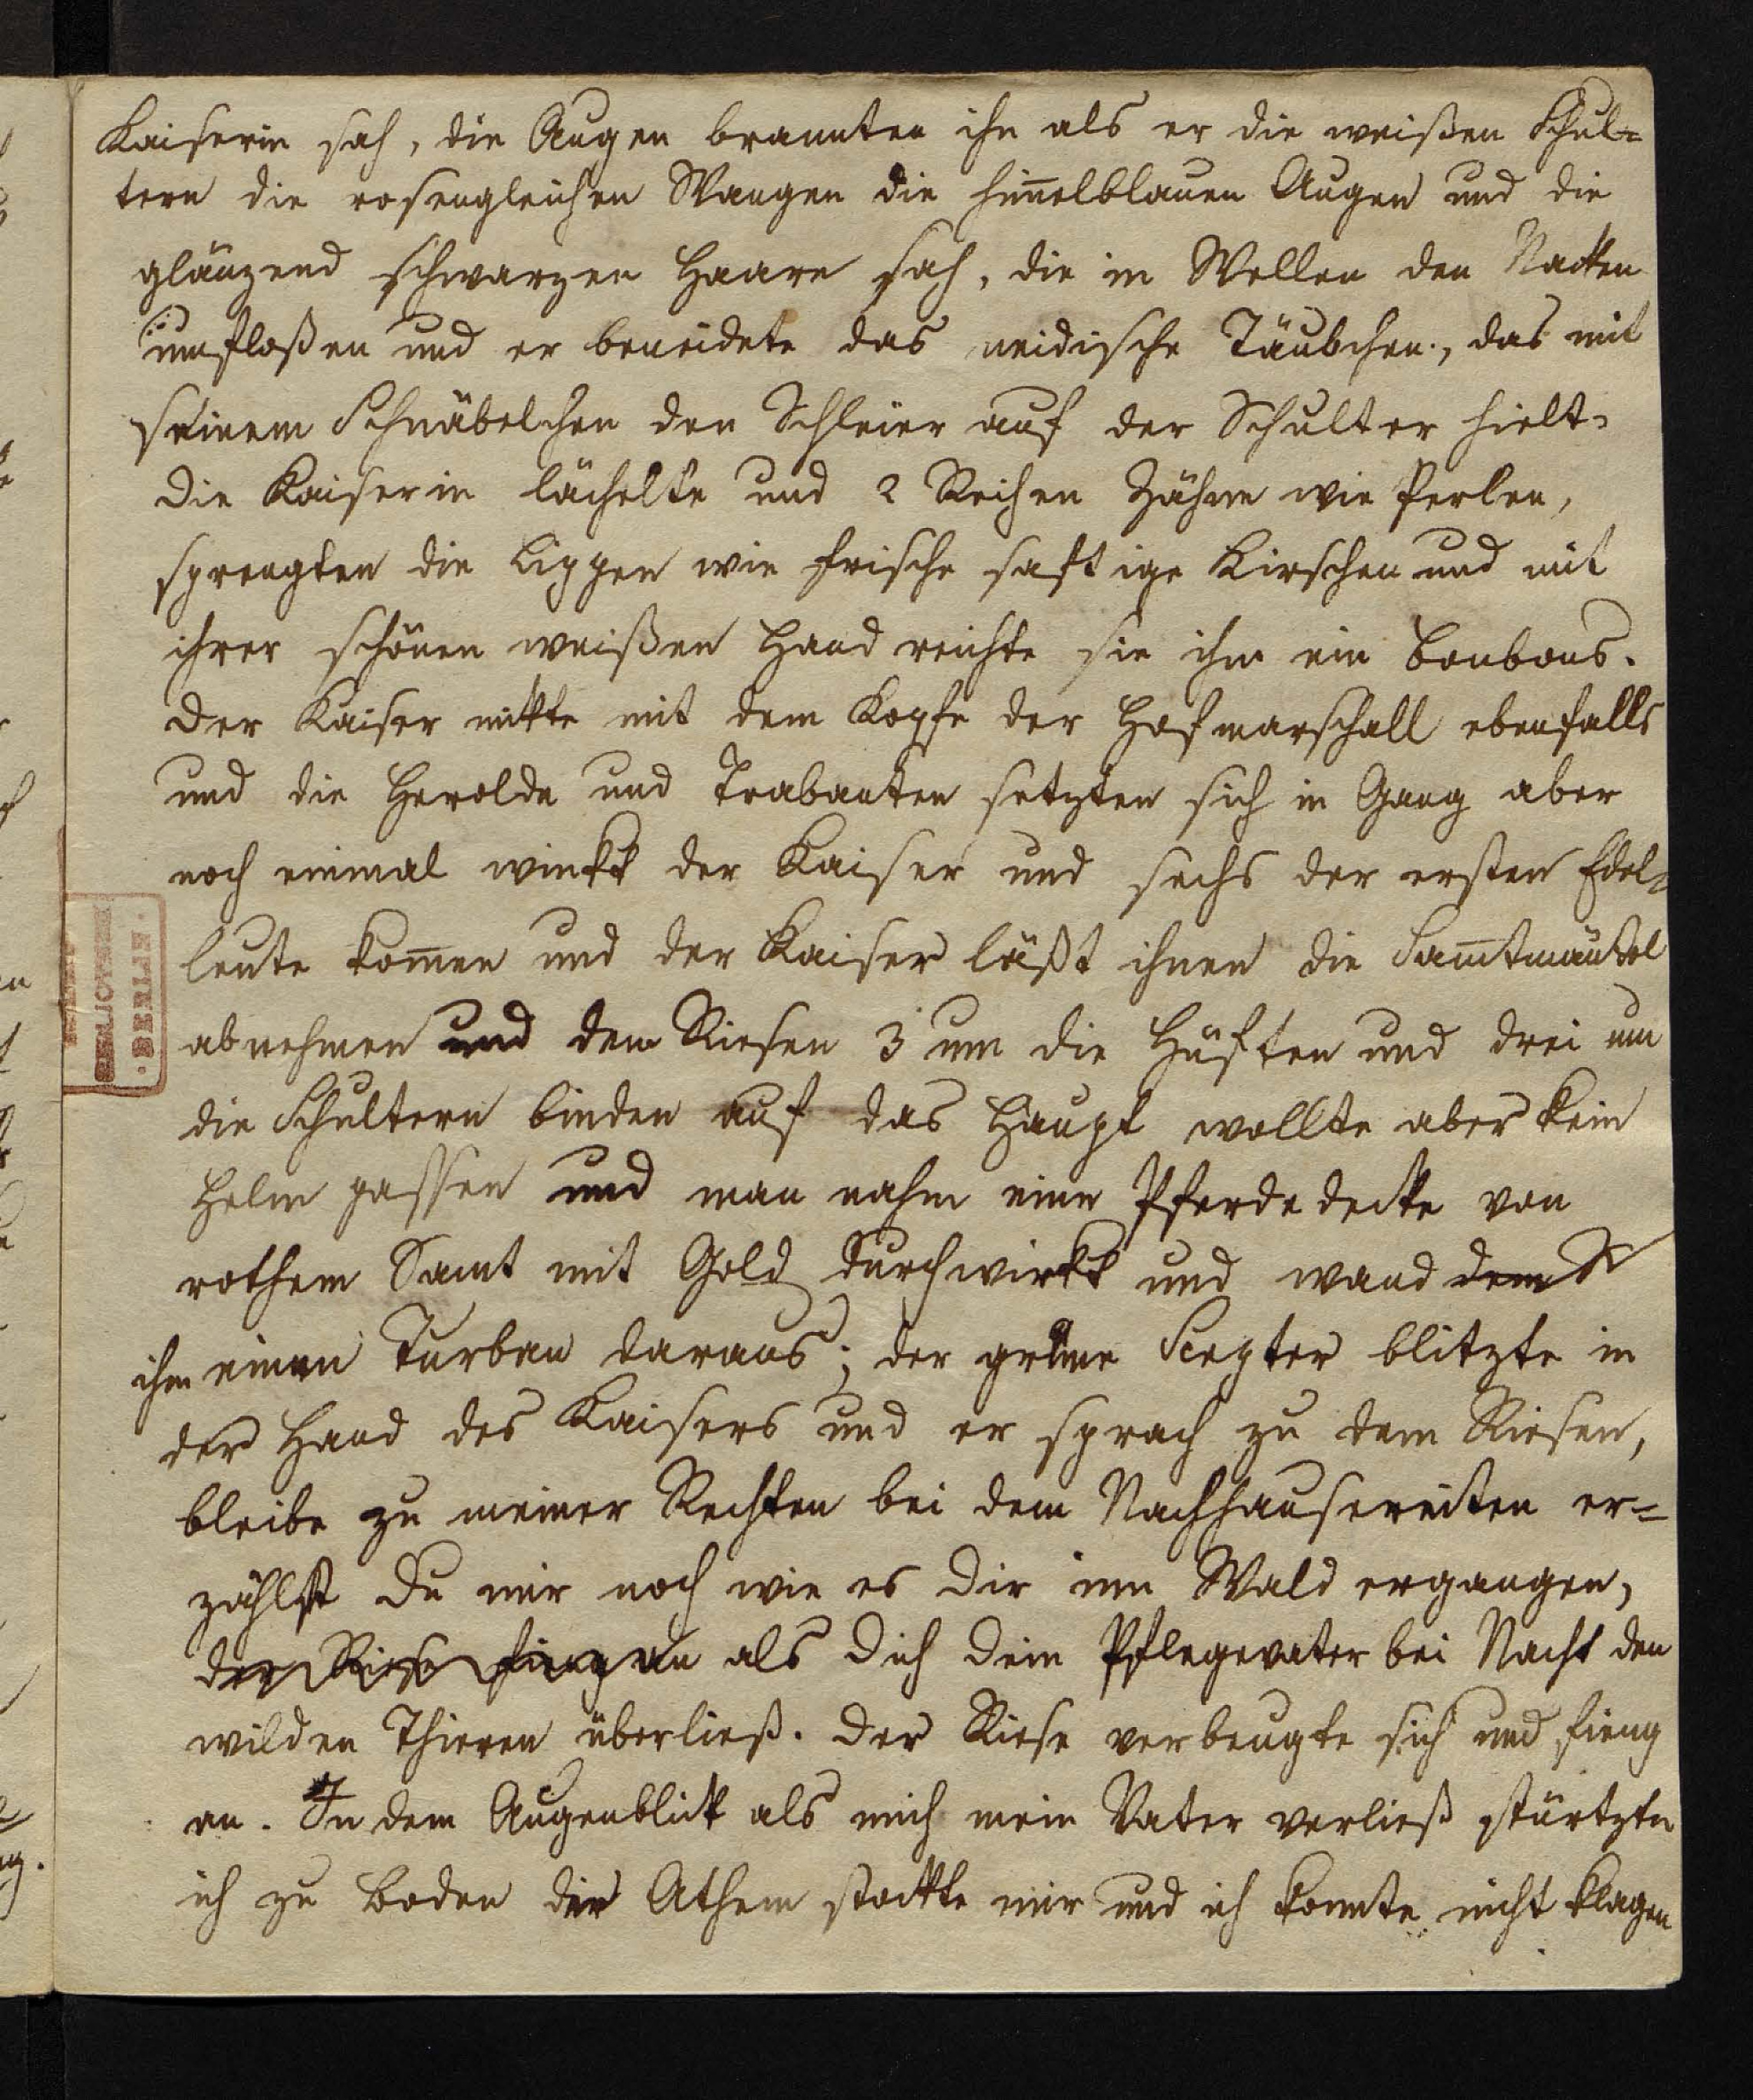 Kaiserin sah, die Augen brannten ihn als er die weißen Schul=
tern die rosengleichen Wangen die him̅elblauen Augen und die
glänzend schwarzen Haare sah, die in Wellen den Nacken
umfloßen und er beneidete das neidische Täubchen, das mit
seinem Schnäbelchen den Schleier auf der Schulter hielt.
Die Kaiserin lächelte und 2 Reihen Zähne wie Perlen,
sprengten die Lippen wie frische saftige Kirschen und mit
ihrer schönen weißen Hand reichte sie ihm ein Bonbons.
Der Kaiser nickte mit dem Kopfe der Hofmarschall ebenfalls
und die Herolde und Trabanten setzten sich in Gang aber
noch einmal winkt der Kaiser und sechs der ersten Edel=
leute kom̅en und der Kaiser läßt ihnen die Sam̅tmäntel
abnehmen und dem Riesen 3 um die Hüften und drei um
die Schultern binden auf das Haupt wollte aber kein
Helm passen und man nahm eine Pferdedecke von
rothem Samt mit Gold durchwirkt und wand dem R
ihm einen Turban daraus; der grüne Scepter blitzte in
der Hand des Kaisers und er sprach zu dem Riesen,
bleibe zu meiner Rechten bei dem Nachhausereiten er=
zählst du mir noch wie es dir im Wald ergangen,
der Riese fieng an als dich dein Pflegevater bei Nacht den
wilden Thieren überließ. Der Riese verbeugte sich und fieng
an. In dem Augenblick als mich mein Vater verließ stürtzte
ich zu Boden der Athem stockte mir und ich konnte nicht klagen
BIBLIOTHEK
BERLIN